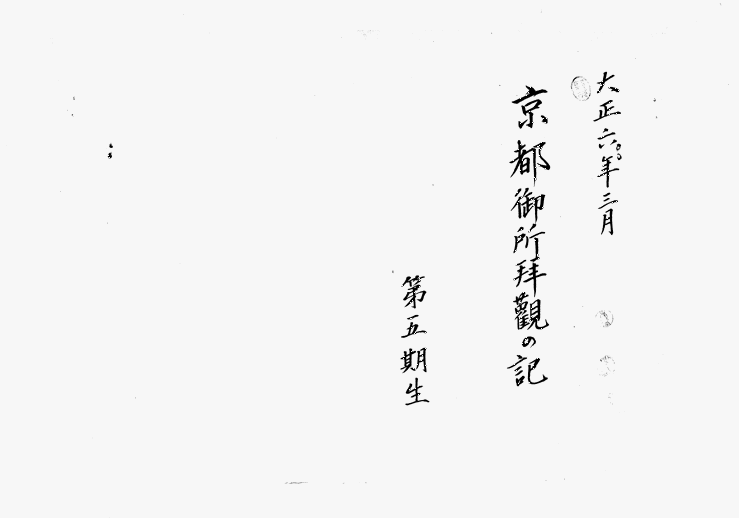 大正六年三月
京都御所拜觀の記
第五期生